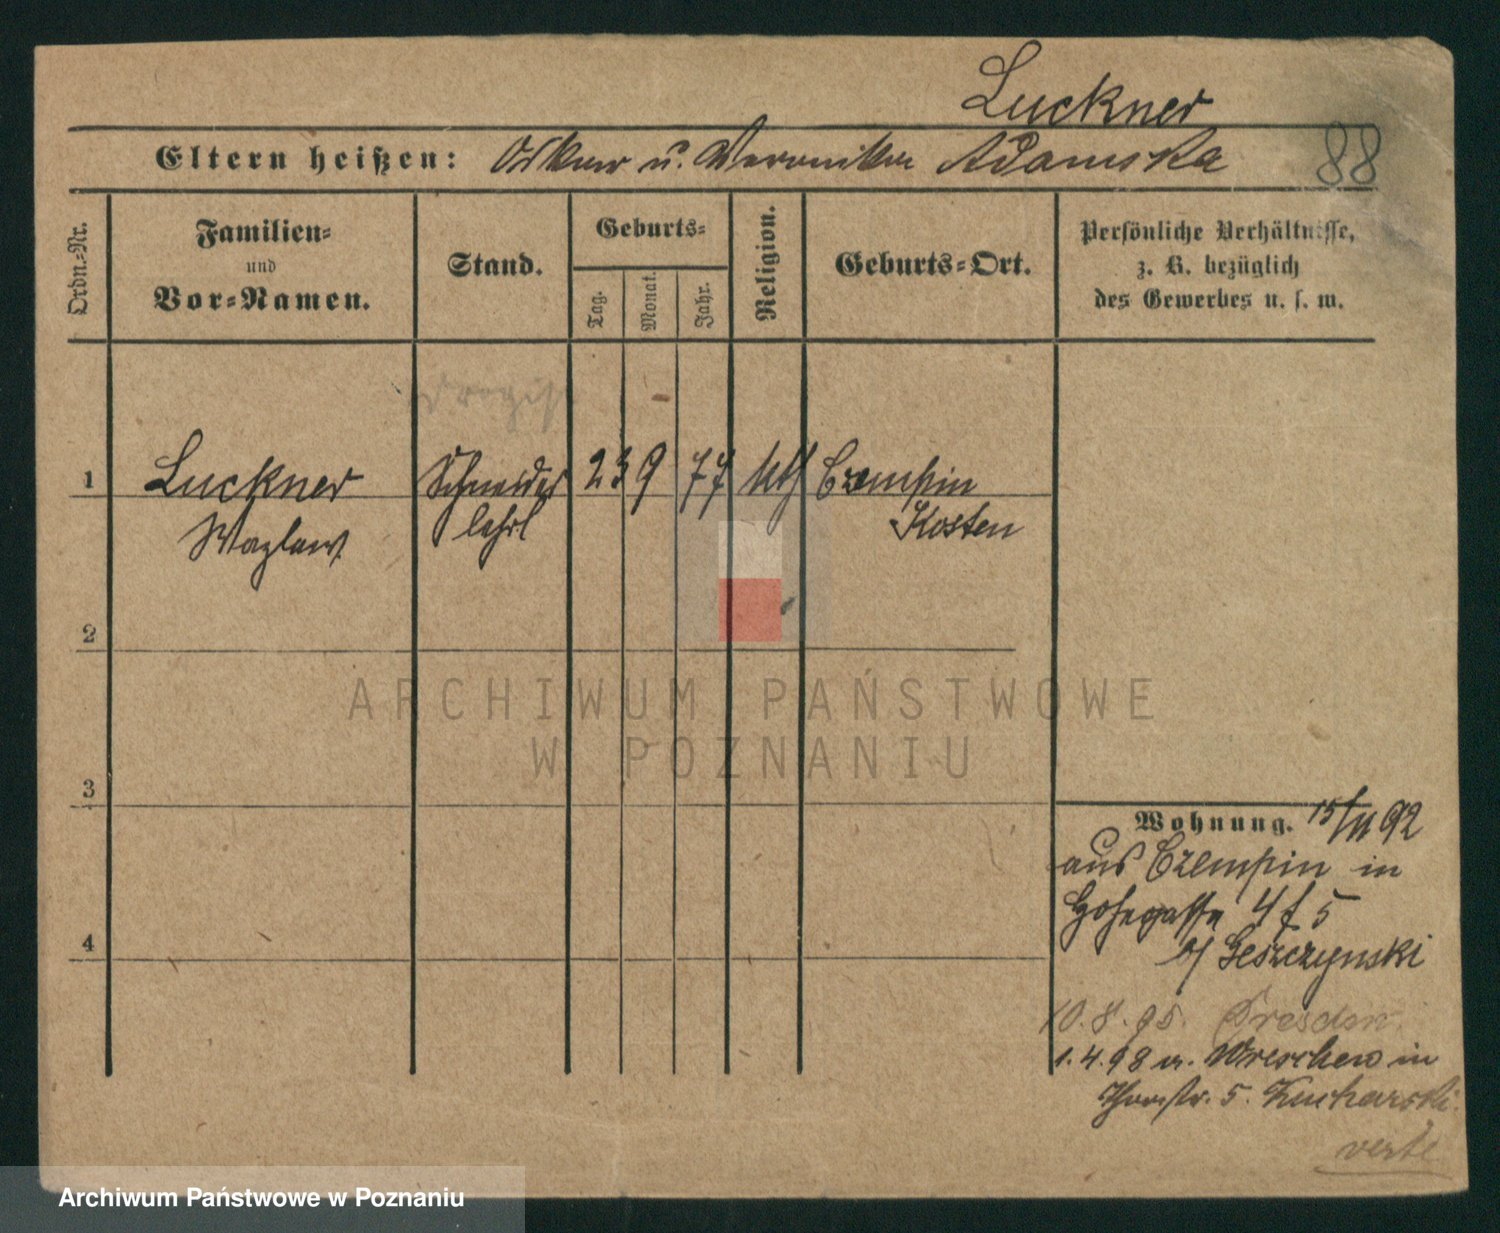 Luckner
Eltern heißen: Oskar u. Veronika Adamska
88
Ordn.-Nr.
Familien-
und
Vor-Namen.
Stand.
Geburts-
Tag.
Monat.
Jahr.
Religion.
Geburts-Ort.
Persönliche Verhältnisse,
z. B. bezüglich
des Gewerbes u. s. w.
1
Luckner
Schneider
23
9
77
kth
Czempin
Wazlaw
lehrl
Kosten
2
ARCHIWUM PAŃSTWOWE
W POZNANIU
3
Wohnung. 15/11 92
aus Czempin in
Hohegasse 4 f 5
b/ Leszczynski
4
10.8.95. Dresden
1.4.98 a. Wreschen in
Thorstr. 5. Kucharski.
verte
Archiwum Państwowe w Poznaniu